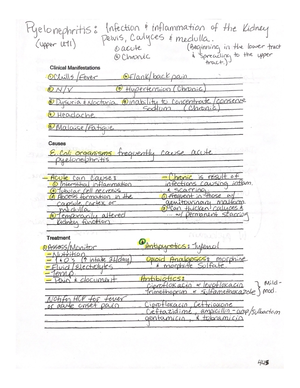 Pyelonephritis: Infection & inflammation of the Kidney
(upper UTI) Pelvis, Calyces & medulla.
① acute (Beginning in the lower tract
② Chronic & spreading to the upper
tract.)
Clinical Manifestations
① Chills/Fever ⑥ Flank/back pain
② N/V ⑦ Hypertension (Chronic)
③ Dysuria & Nocturia ⑧ Inability to concentrate/conserve
Sodium (Chronic)
④ Headache
⑤ Malaise/Fatigue
Causes
E. Coli organisms frequently cause acute
pyelonephritis
- Acute can cause: - Chronic is result of
① Interstitial inflammation infections causing inflam
② Tubular cell necrosis & scarring
③ Abcess formation in the
capsule, cortex or
medulla
④ Temporarily altered & permanent scarring
kidney function
Treatment
① Assess/Monitor ② Antipyretics: Tylenol
- Nutrition
- I & O's Opoid Analgesics: morphine &
- Fluid/Electrolytes morphine Sulfate
- Temp
- Pain & document Antibiotics:
Ciprofloxacin levofloxacin Mild-
Trimethoprim & sulfamethoxazole mod.
Notify HCP for fever
or acute onset pain Ciprofloxacin, Ceftriaxone,
Ceftazidime, ampicillin-sulbactam
gentamicin, & tobramicin